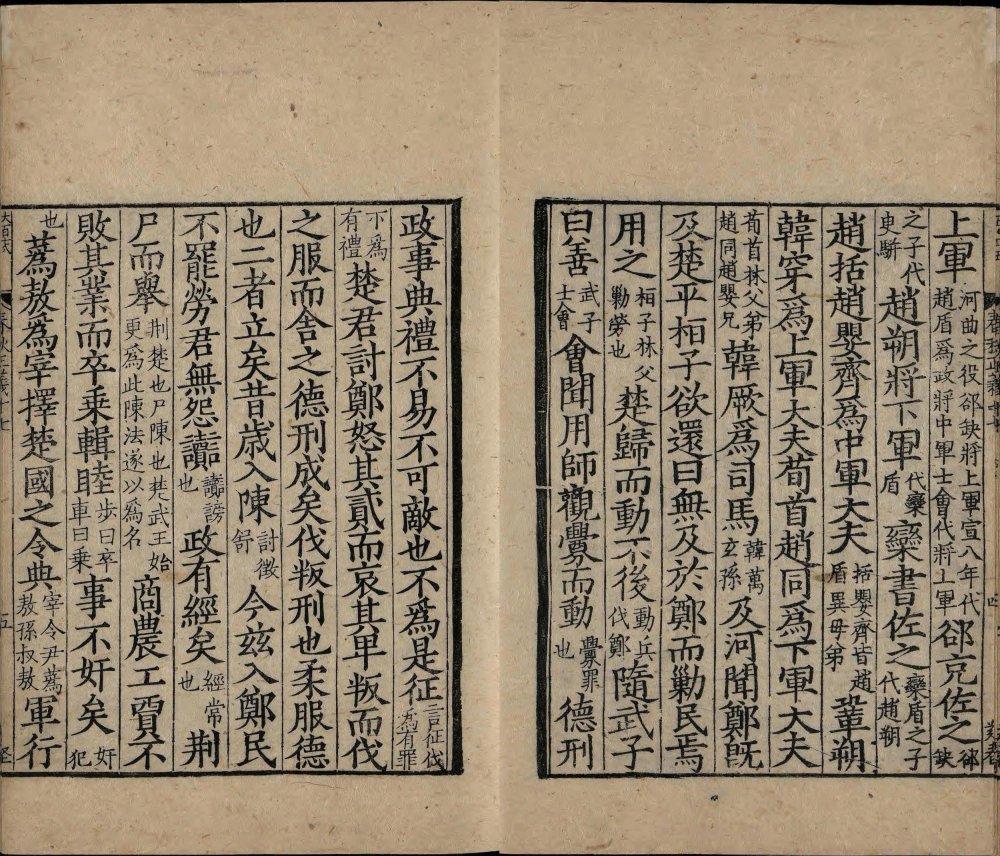 上軍河曲之役郤缺將上軍宣八年代趙盾爲政將中軍士會代將上軍郤克佐之郤缺
之子代臾駢趙朔將下軍代欒盾欒書佐之欒盾之子代趙朔
趙括趙嬰齊爲中軍大夫括嬰齊皆趙盾異母弟鞏朔
韓穿爲上軍大夫荀首趙同爲下軍大夫
荀首林父弟趙同趙嬰兄韓厥爲司馬韓萬玄孫及河聞鄭旣
及楚平桓子欲還曰無及於鄭而勦民焉
用之桓子林父勦勞也楚歸而動不後動兵伐鄭隨武子
曰善武子士會會聞用師觀釁而動釁罪也德刑
政事典禮不易不可敵也不爲是征言征伐爲有罪
不爲有禮楚君討鄭怒其貳而哀其卑叛而伐
之服而舍之德刑成矣伐叛刑也柔服德
也二者立矣昔歳入陳討徵舒今兹入鄭民
不罷勞君無怨讟讟謗也政有經矣經常也荆
尸而舉荆楚也尸陳也楚武王始更爲此陳法遂以爲名商農工賈不
敗其業而卒乘輯睦步曰卒車曰乘事不奸矣奸犯
也蒍敖爲宰擇楚國之令典宰令尹蒍敖孫叔敖軍行